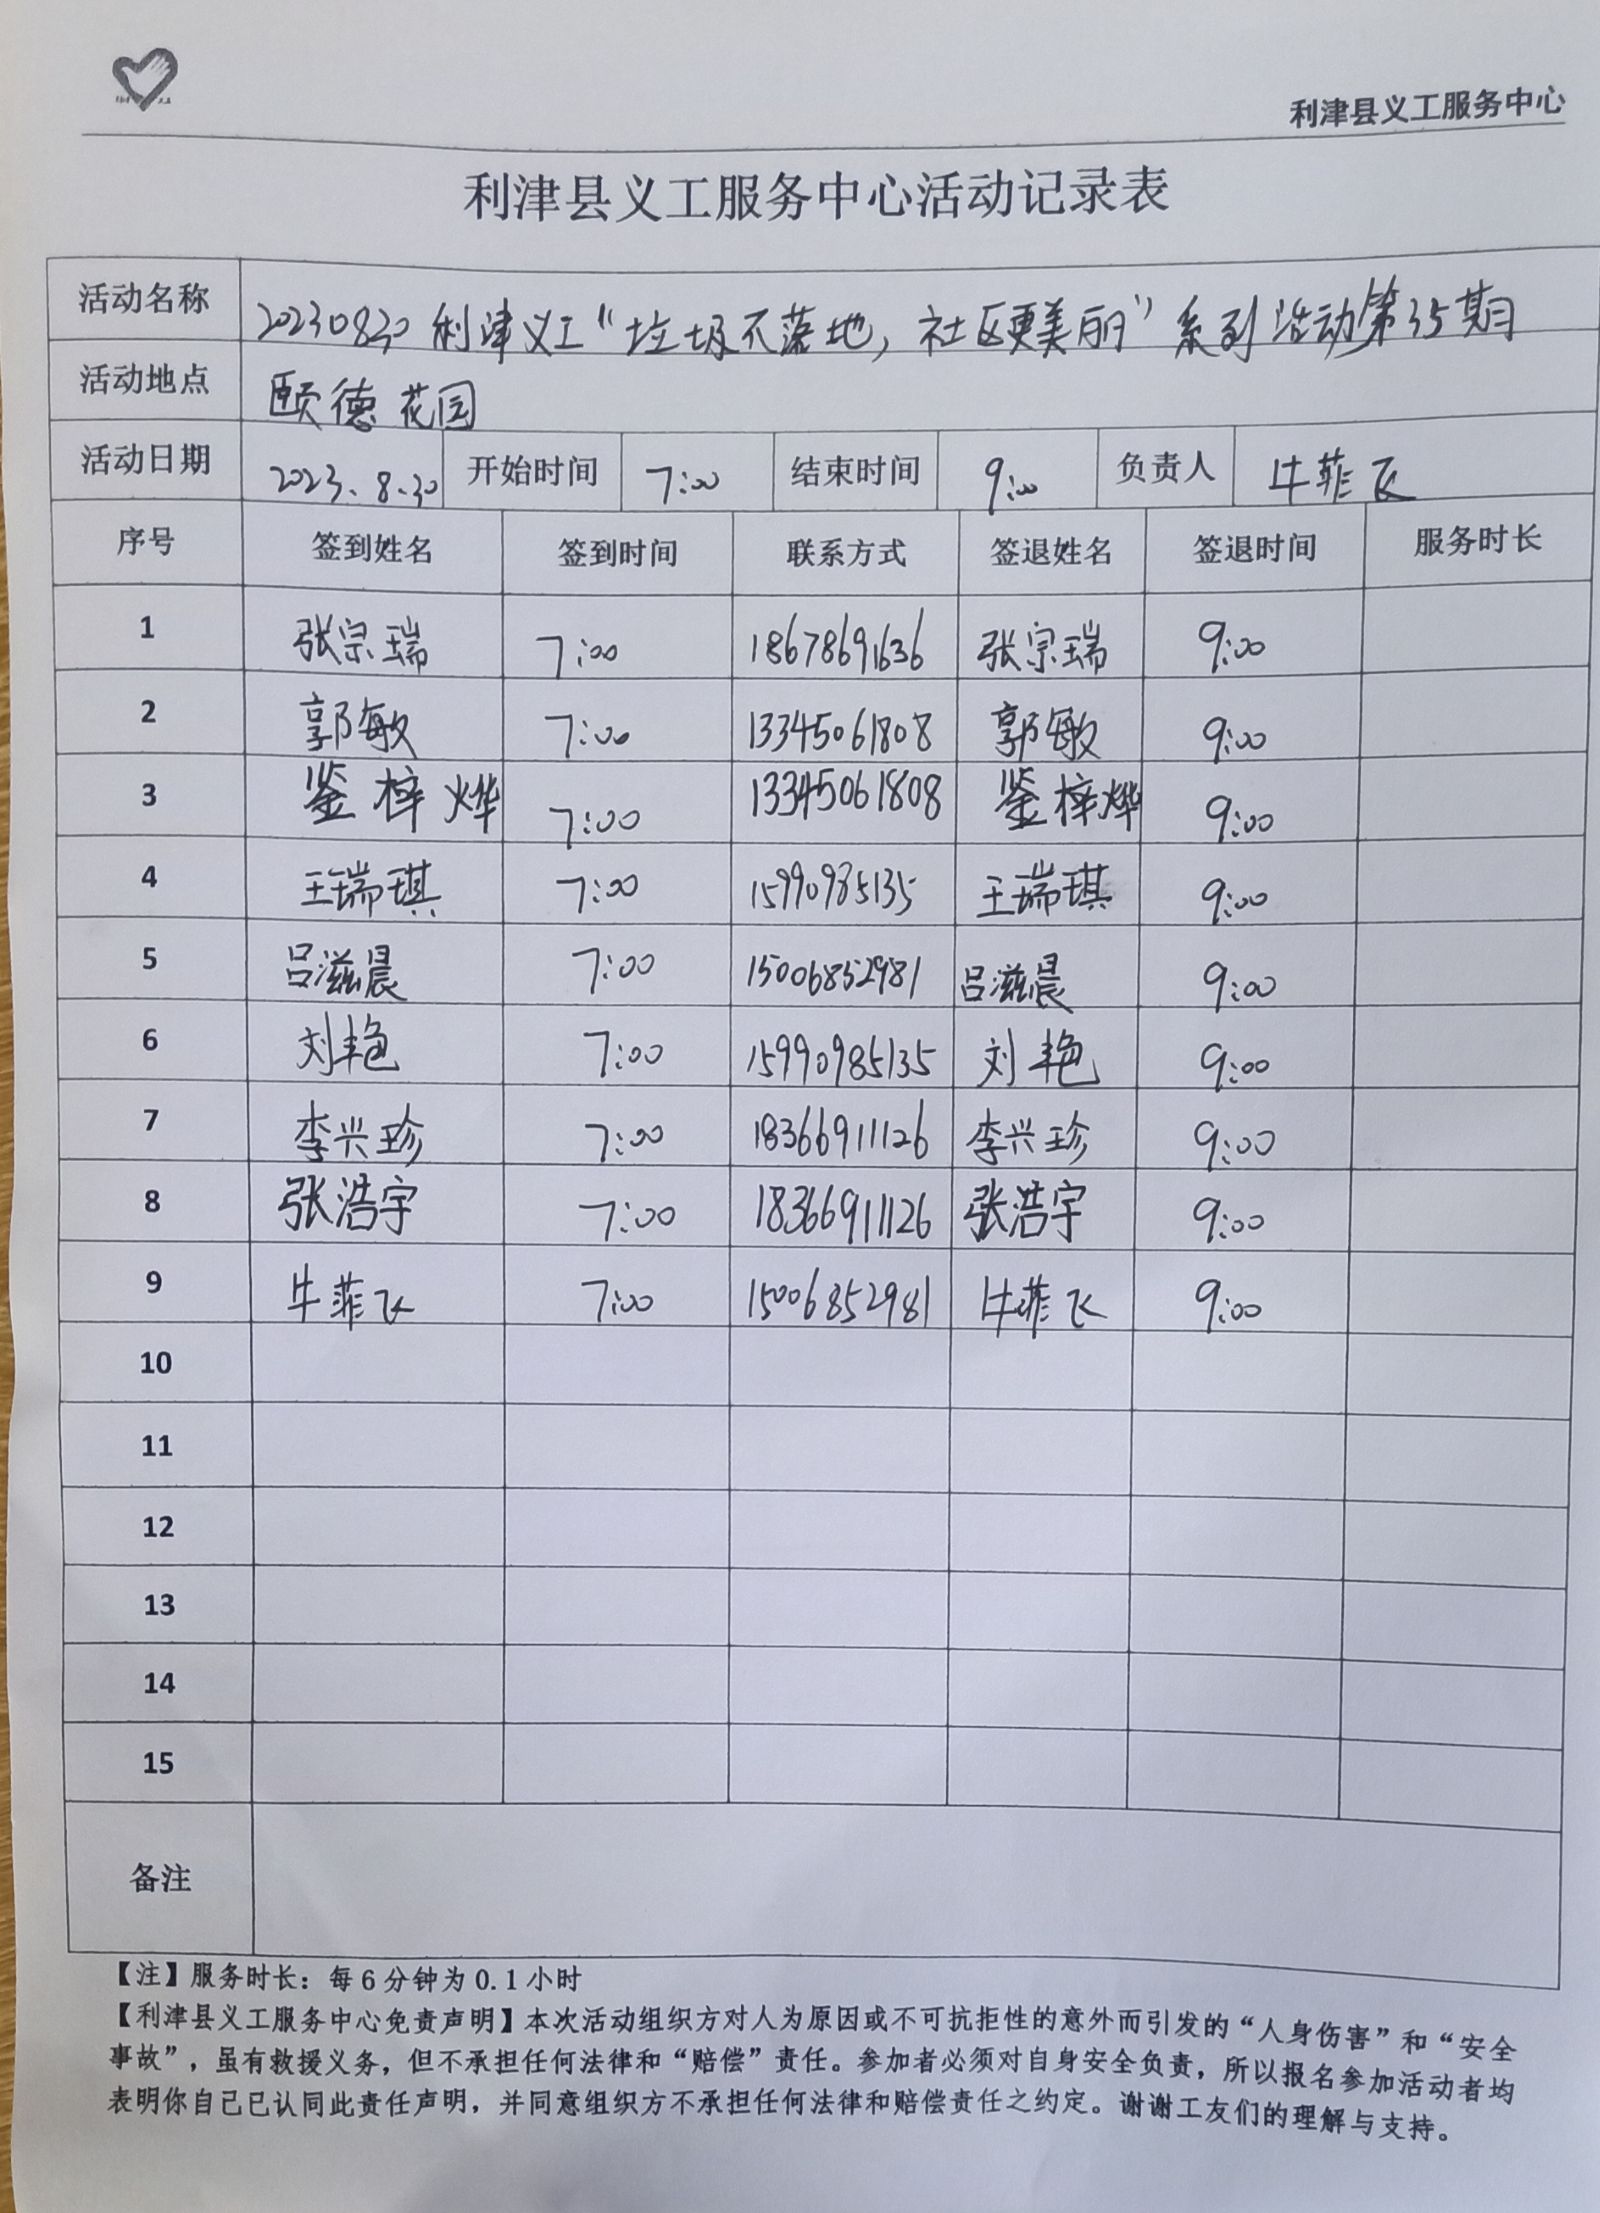 利津县义工服务中心
利津县义工服务中心活动记录表
活动名称 20230830利津义工“垃圾不落地，社区更美丽”系列活动第35期
活动地点 颐德花园
活动日期 2023.8.30 开始时间 7:00 结束时间 9:00 负责人 牛菲飞
序号 签到姓名 签到时间 联系方式 签退姓名 签退时间 服务时长
1 张宗瑞 7:00 18678691636 张宗瑞 9:00
2 郭敏 7:00 13345061808 郭敏 9:00
3 鉴梓烨 7:00 13345061808 鉴梓烨 9:00
4 王瑞琪 7:00 15990985135 王瑞琪 9:00
5 吕滋晨 7:00 15006852981 吕滋晨 9:00
6 刘艳 7:00 15990985135 刘艳 9:00
7 李兴珍 7:00 18366911126 李兴珍 9:00
8 张浩宇 7:00 18366911126 张浩宇 9:00
9 牛菲飞 7:00 15006852981 牛菲飞 9:00
10
11
12
13
14
15
备注
【注】服务时长：每6分钟为0.1小时
【利津县义工服务中心免责声明】本次活动组织方对人为原因或不可抗拒性的意外而引发的“人身伤害”和“安全
事故”，虽有救援义务，但不承担任何法律和“赔偿”责任。参加者必须对自身安全负责，所以报名参加活动者均
表明你自己已认同此责任声明，并同意组织方不承担任何法律和赔偿责任之约定。谢谢工友们的理解与支持。